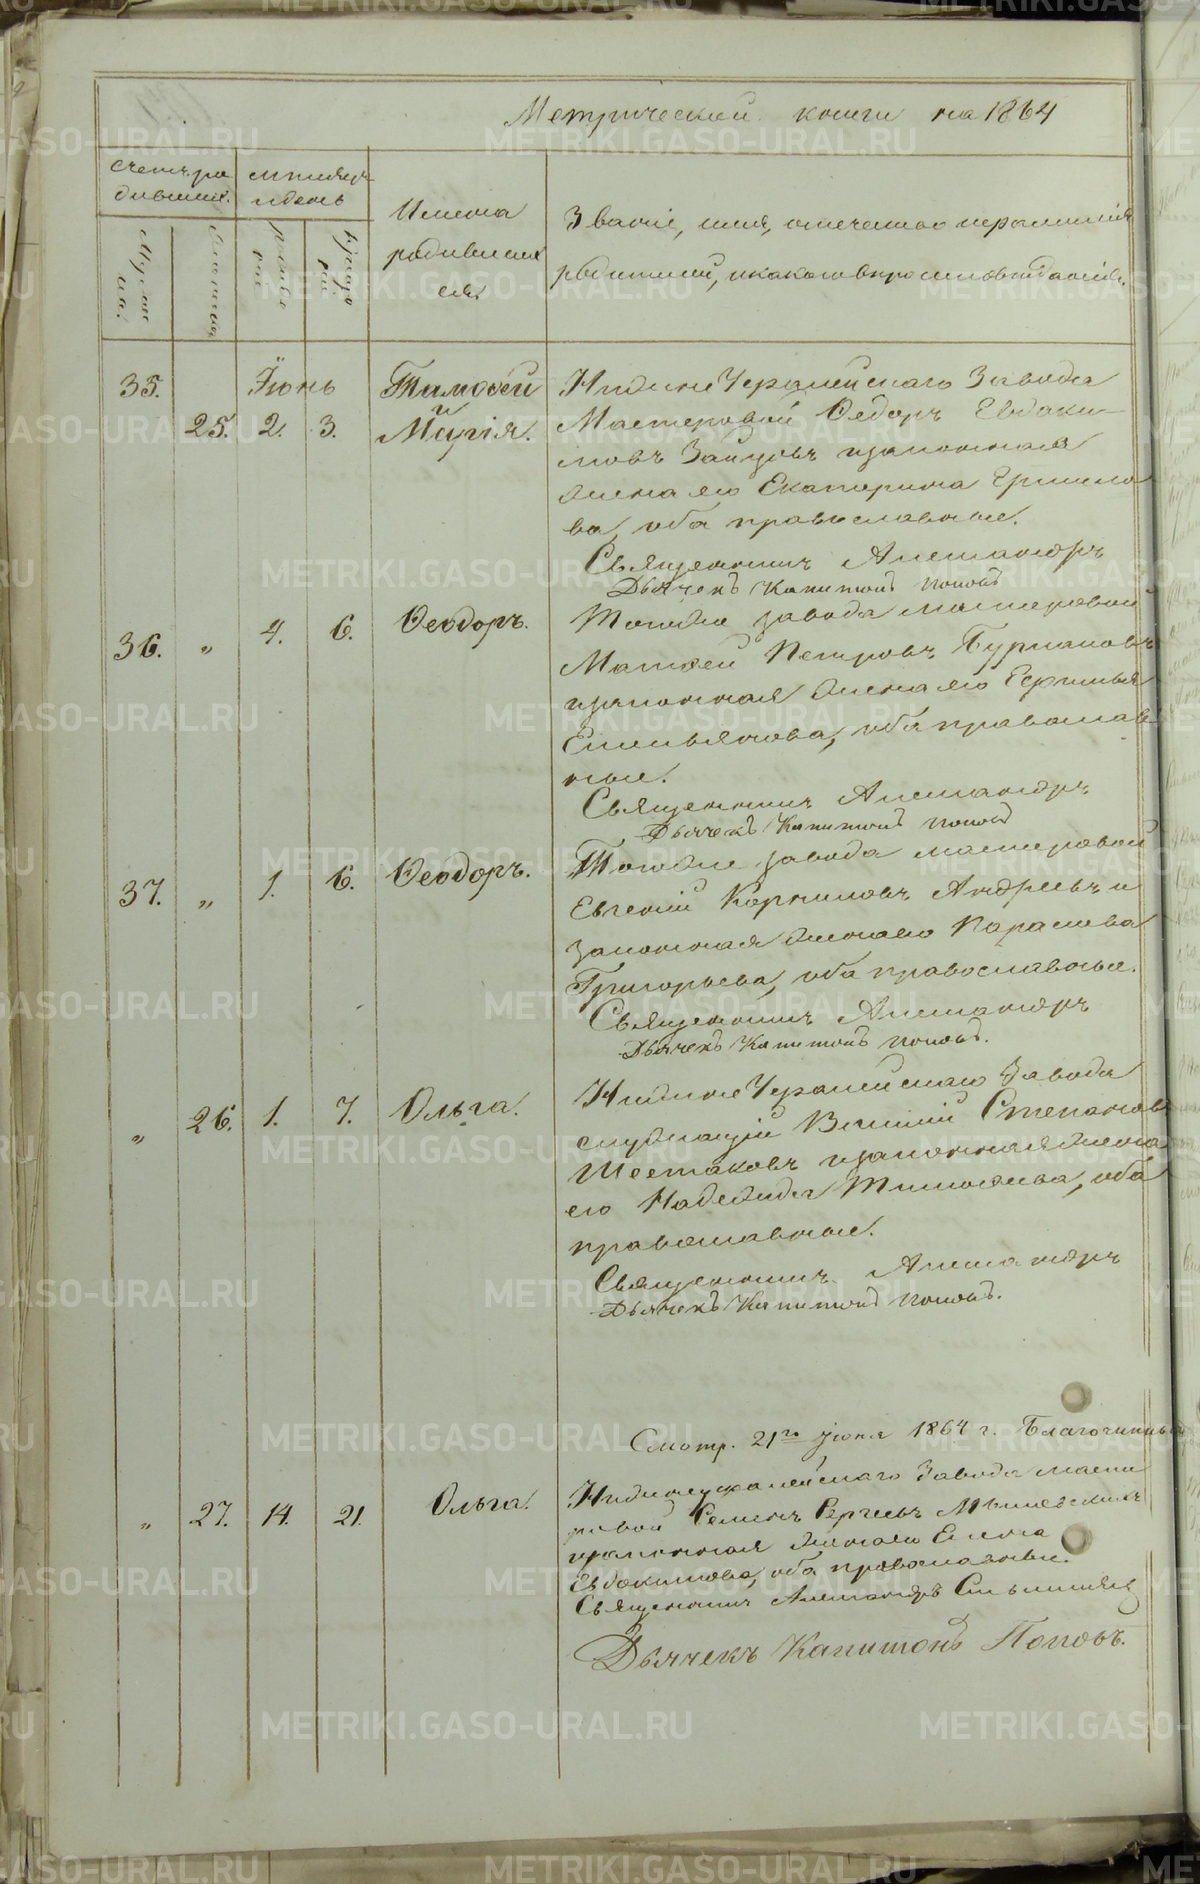 Метрической книги на 1864
Счетъ ро
дившихс.
мѣсяцъ
и день
Имена
родивших
ся.
Званіе, имя, отечество и фамилія
родителей, и какого вѣроисповѣданія.
Мужес
ка.
Женска
рожде
нія
креще
нія
35. Іюнь Тимоѳей
и
25. 2. 3. Марія.
НижнеУфалейскаго Завода
Мастеровой Ѳедоръ Евдоки-
мовъ Зайцовъ и законная
жена его Екатерина Ермило
ва, оба православные.
Священникъ Александръ
Дьячекъ Капитонъ Поповъ
36. „ 4. 6. Ѳеодоръ.
Тогоже завода мастеровой
Матѳей Петровъ
и законная жена его Ефимья
Емельянова, оба православ
ные.
Священникъ Александръ
Дьячекъ Капитонъ Поповъ
37. „ 1. 6. Ѳеодоръ.
Тогоже завода мастеровой
Евгеній Корниловъ Андреевъ и
законная жена его Параскева
Григорьева, оба православные.
Священникъ Александръ
Дьячекъ Капитонъ Поповъ.
„ 26. 1. 7. Ольга.
НижнеУфалейскаго Завода
служащій Василій Степановъ
Шестаковъ и законная жена
его Надежда Тимоѳеева, оба
православные.
Священникъ Александръ
Дьячекъ Капитонъ Поповъ.
Смотр. 21го Іюня 1864 г. Благочинный
„ 27. 14. 21. Ольга.
Нижнеуфалейскаго Завода масте
ровой Семенъ Сергѣевъ
и законная жена его Елена
Евдокимова, оба православные.
Священникъ Александръ
Дьячекъ Капитонъ Поповъ.
METRIKI.GASO-URAL.RU